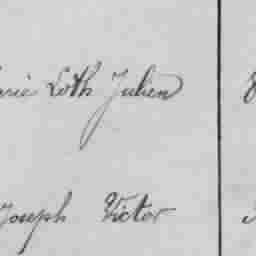 Loth Julien
Joseph Victor